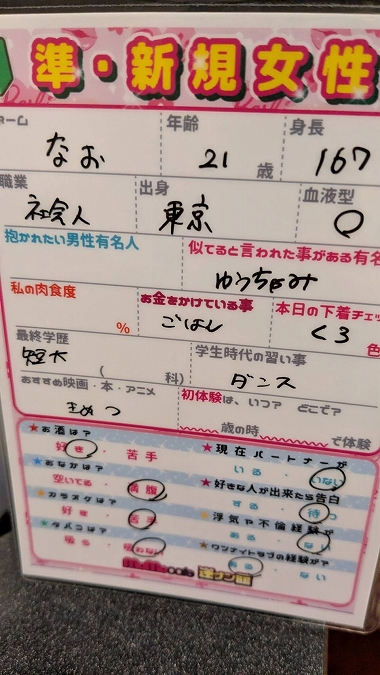 準・新規女性
ーム 年齢 身長
なお 21歳 167
職業 出身 血液型
社会人 東京 O
抱かれたい男性有名人 似てると言われた事がある有名
ゆうちゃみ
私の肉食度 お金をかけている事 本日の下着チェッ
% ごはん くろ 色
最終学歴 学生時代の習い事
短大 ( 科) ダンス
おすすめ映画・本・アニメ 初体験は、いつ? どこで?
きめつ 歳の時 で体験
★お酒は? ★現在パートナーが
好き・苦手 いる・いない
★おなかは? ★好きな人が出来たら告白
空いてる・満腹 する・待つ
★カラオケは? ★浮気や不倫経験が
好き・苦手 ある・ない
★タバコは? ★ワンナイトラブの経験が?
吸う・吸わない ある・ない
cafe